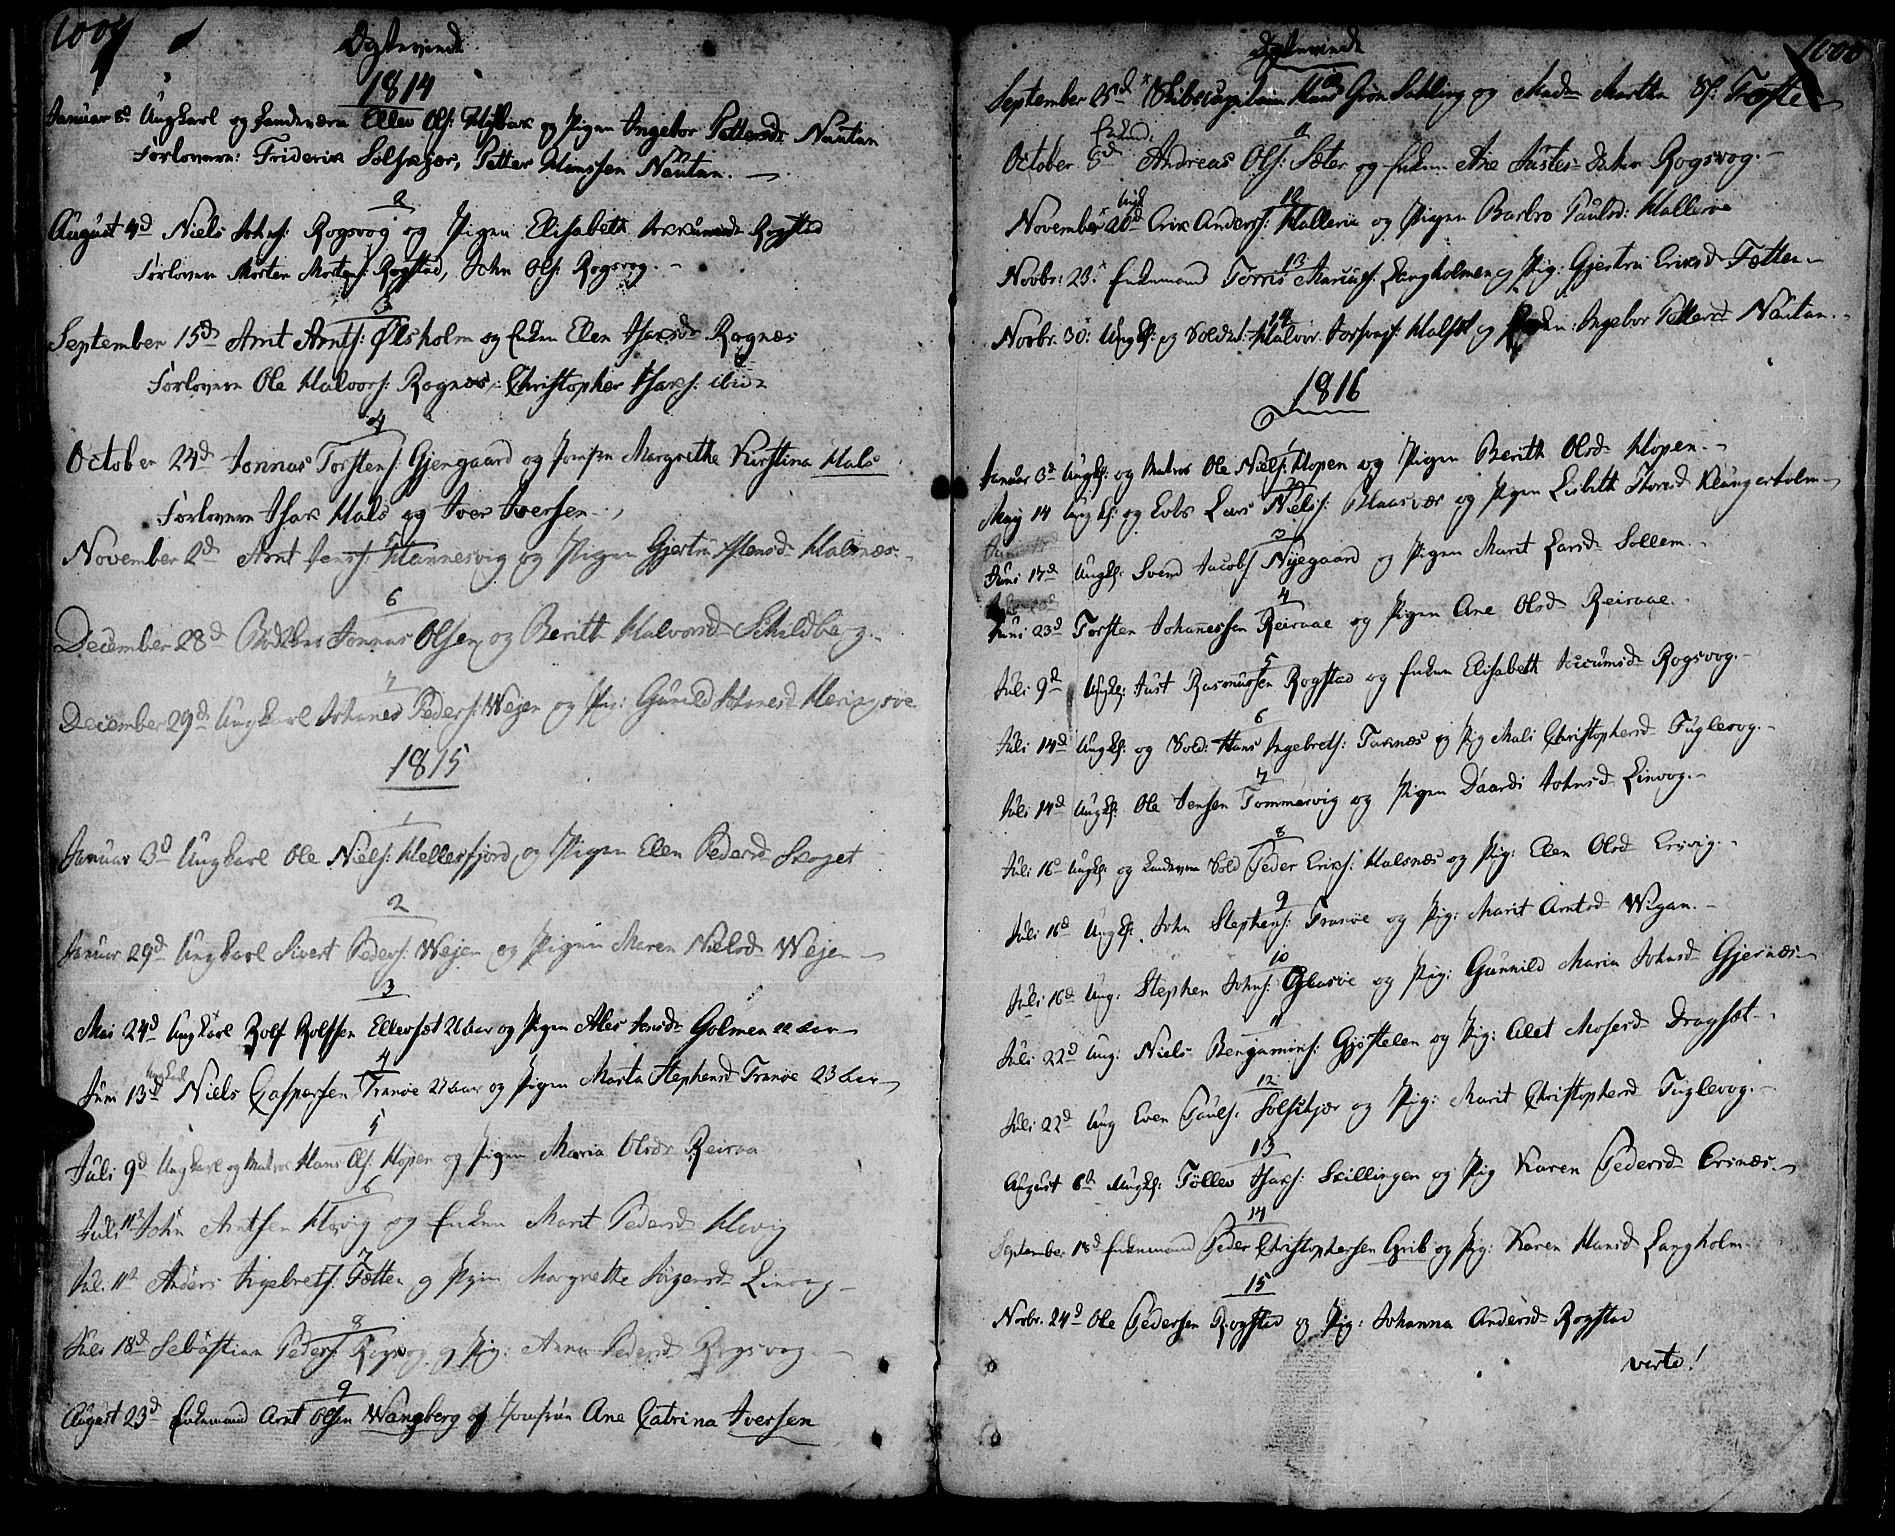 1004
Egteviede
1814
Januar 5d Ungkarl og Landeværn Ellev Ols: og Pigen Ingebor Pettersdr Nautan
Forlovere: Friderik Solskjær, Petter Nautan.
2
August 4d Niels Johns: Rogsvog og Pigen Elisabeth Rogstad
Forlovere Morten Mortens: Rogstad, John Ols: Rogsvog.
3
September 15d Arnt Arnts: Ølsholm og Enken Elen Isaksdr Rognæs
Forlovere Ole Halvors: Rognæs, Christopher Isaks: ibid
4
October 24d Jonnas Torstens: Gjengaard og Jomfru Margrethe Kirstina Hals
Forlovere Isak Hals og Iver Iversen
5
November 2d Arnt Jenss: Hannesvig og Pigen Gjertru Halsnæs
6
December 28d Jonnas Olsen og Berith Halvorsd Schildberg.
7
December 29d Ungkarl Johanes Peders: Wejen og Pi: Gunild Johanesd
1815
1
Januar 3d Ungkarl Ole Niels: Hellesfjord og Pigen Elen Pedersd Skoget
2
Januar 29d Ungkarl Sivert Peders: Wejen og Pigen Maren Nielsd Wejen
3
Mai 24d Ungkarl Rolf Rolfssen Ellevset 26 Aar og Pigen Ales Jensdr Golmen 22 Aar
4
Ungkarl
Juni 13d Niels Caspersen Tranøe 27 Aar og Pigen Marta Stephensd Tranøe 23 Aar
5
Juli 9d Ungkarl og Matros Hans Ols: Hopen og Pigen Maria Olsdr Reiraa
6
Juli 11d John Arntsen og Enken Marit Pedersd
7
Juli 11d Anders Ingebrets: Fætten og Pigen Margrette Jørgensd Linvog
8
Juli 18d Sebastian Peders: Rogsvog og Pig: Anna Pedersd Rogsvog
9
August 23d Enkemand Arnt Olsen Wangberg og Jomfrue Ane Catrina Iversen
Egteviede
1005
10
September 25d Skibscapitain Hans Grøn Sahling og Madm Martha Sl: Tofte
Enkemd:
11
October 8d Andreas Ols: Sæter og Enken Ane Justes-Datter Rogsvog.
Ungk
12
November 20d Erik Anderss: Hallerøe og Pigen Barbro Paulsd: Hallerøe
13
Novbr: 23: Enkemand Torris Langholmen og Pig: Gjertru Eriksd Fætten
14
Novbr. 30: Ungk: og Soldat: Halvor og Ingebor Pettersd Nautan.
1816
1
Januar 3d Ungk: og Matros Ole Niels: Hopen og Pigen Berith Olsd Hopen.
2
Maij 14 Ungk: og Lars Niels: Blaasvær og Pigen Lisbeth Klungerholm
3
Juni 17d Ungk: Svend Jacobs: Nyegaard og Pigen Marit Larsd Sollem.
4
Juni 23d Torsten Johannessen Reiraae og Pigen Ane Olsd Reiraae.
5
Juli 9d Ungk: Just Rasmussen Rogstad og Enken Elisabeth Rogsvog.
6
Juli 14d Ungk: og Sold: Hans Ingebrets: Taknæs og Pig Mali Christophersd Fuglevog.
7
Juli 14d Ungk: Ole Jensen Tommervig og Pigen Daardi Johnsd Linvog.
8
Juli 16d Ungk: og Landeværn Sold Peder Eriks: Halsnæs og Pig: Elen Olsd Ersvig.
9
Juli 16d Ungk: John Stephens: Tranøe og Pig: Marit Arntsd Wigan.
10
Juli 16d Ung: Stephen Johns: Glasøe og Pig: Gunnild Maria Johnsd Gjernæs
11
Juli 22d Ung: Niels Benjamins: Gjøstelen og Pig: Alet Mosesd Dragset.
12
Juli 22d Ung Even Pauls: Solskjær og Pig: Marit Christophersd Fuglevog.
13
August 6d Ungk: Tøllev Isaks: Skillingen og Pig Karen Pedersd Ersnæs.
14
September 18d Enkemand Peder Christophersen Grib og Pig: Karen Hansd Langholm
15
Novbr. 24d Ole Pedersen Rogstad og Pig: Johanna Andersd Rogstad
verte!